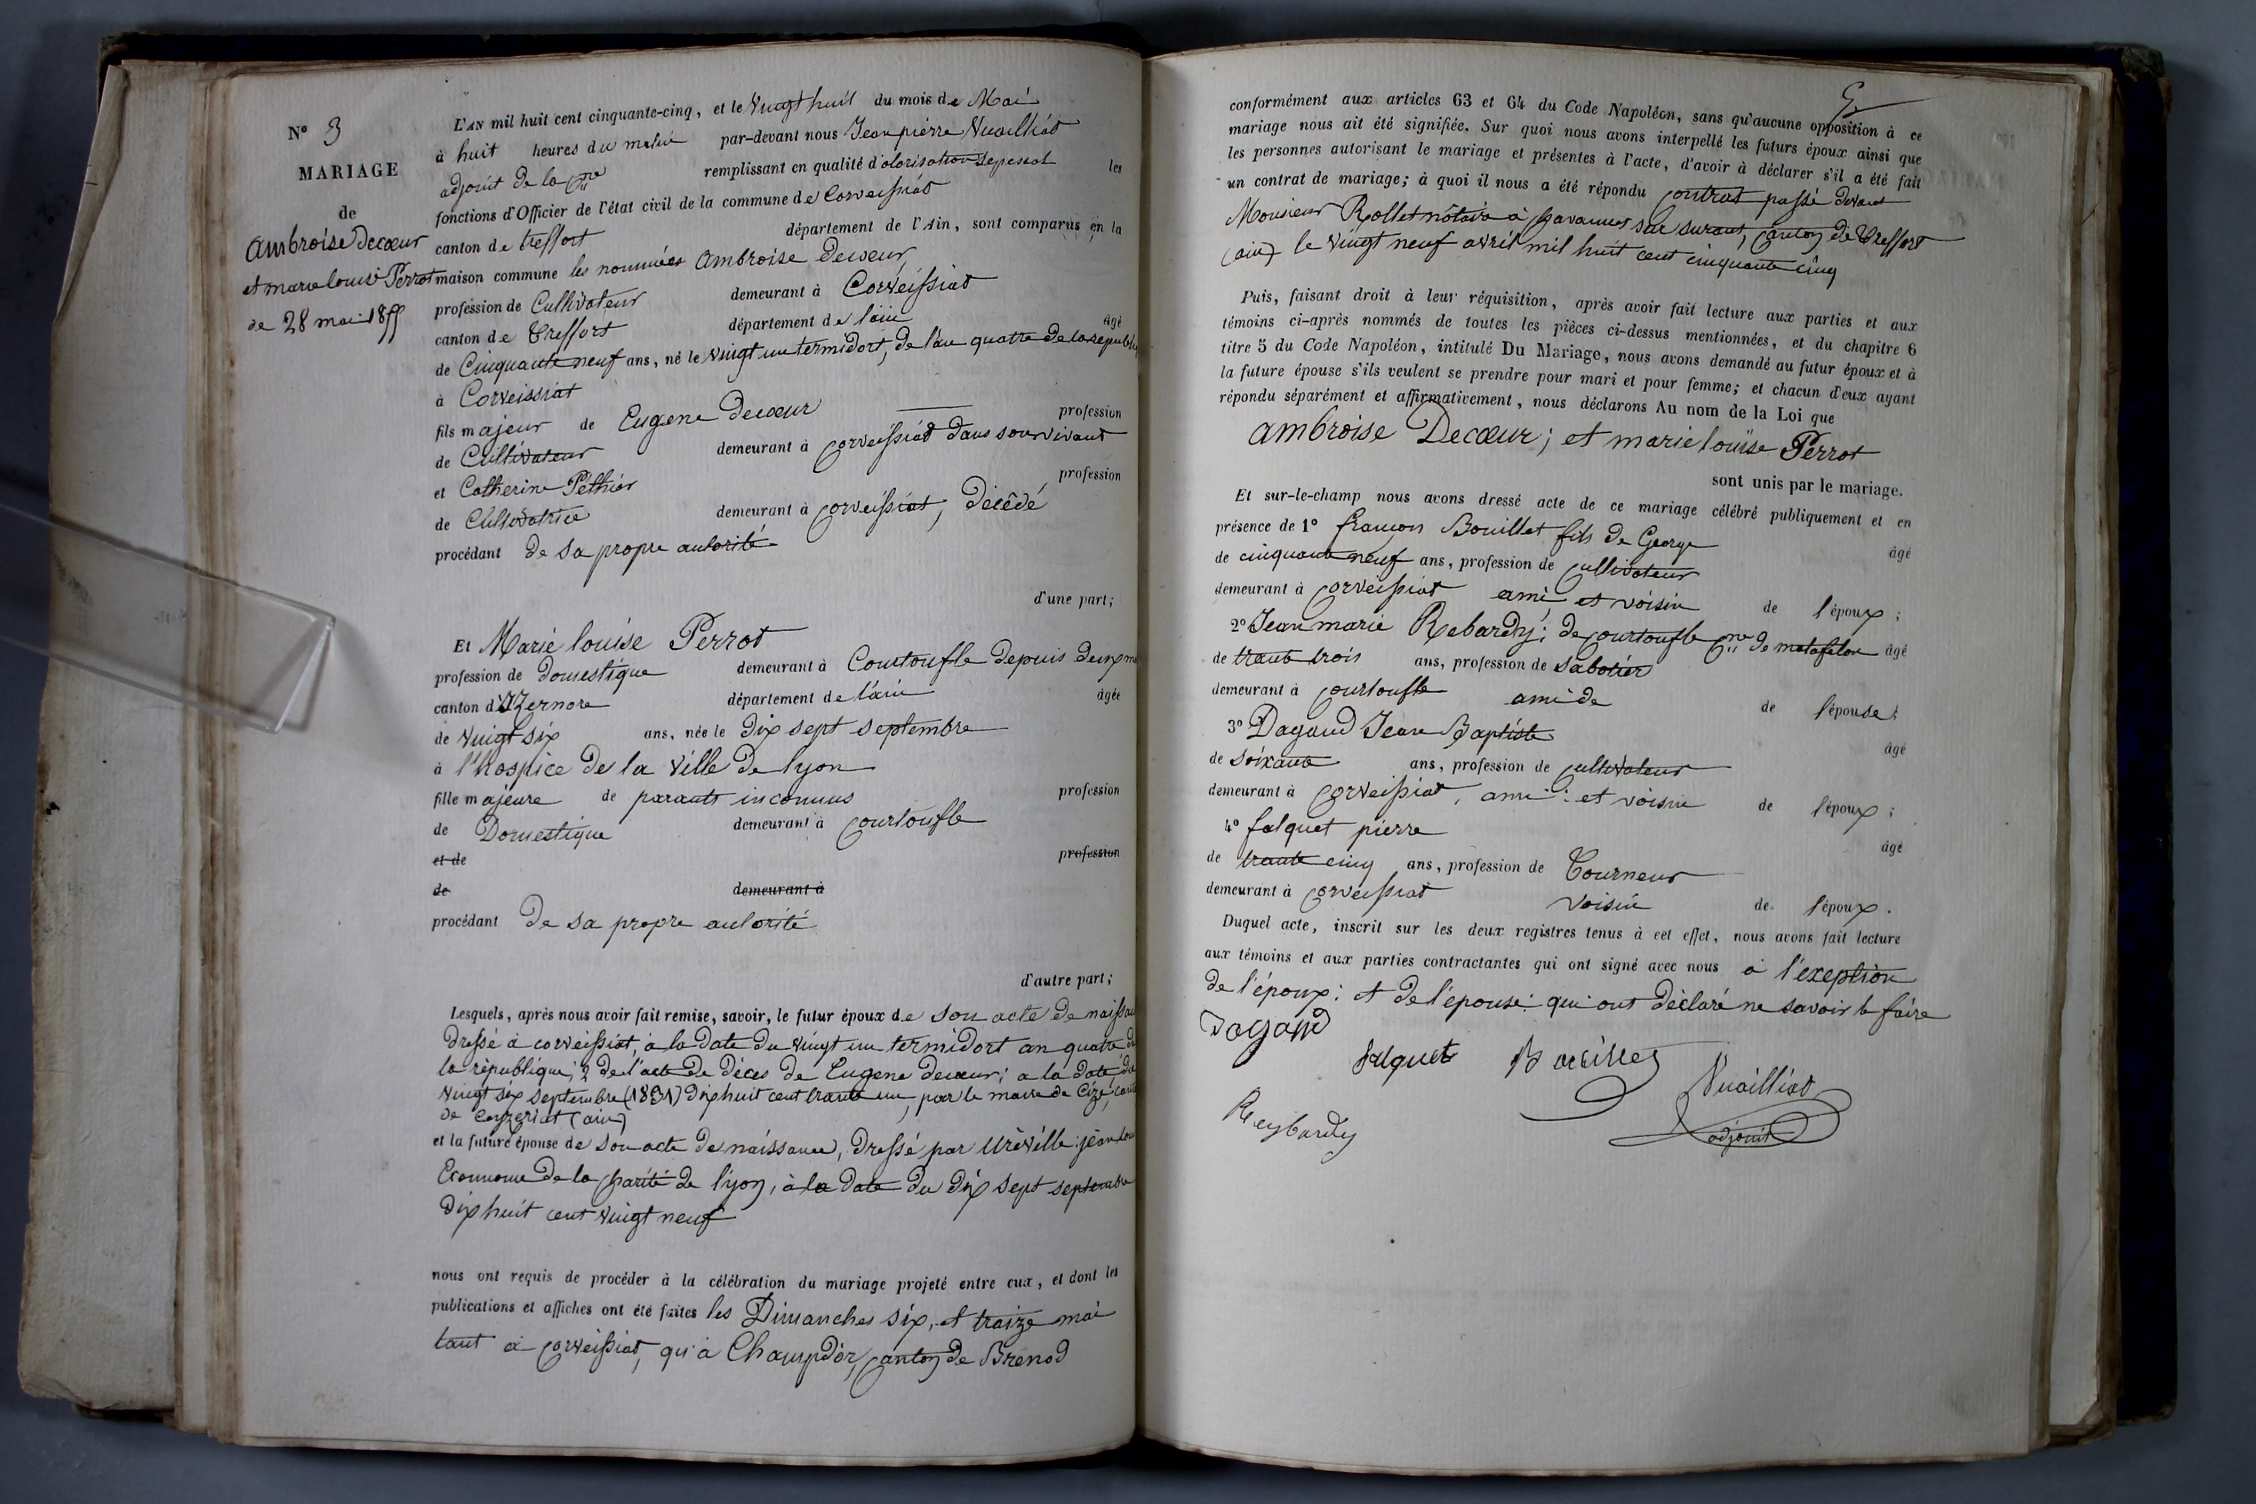 N° 3
MARIAGE
de
Ambroise Decœur
et marie louise Perrot
de 28 mai 1855
L'AN mil huit cent cinquante-cinq, et le vingt huit du mois de Mai
à huit heures du matin par-devant nous Jean pierre Vuailliat
adjoint de la Cne remplissant en qualité d'
les
fonctions d'Officier de l'état civil de la commune de Corveissiat
canton de treffort département de l'Ain, sont comparus en la
maison commune les nommées Ambroise Decœur
profession de Cultivateur demeurant à Corveissiat
canton de Treffort département de l'ain âgé
de Cinquante neuf ans, né le vingt un termidort, de l'an quatre de la republi
à Corveissiat
fils majeur de Eugene Decœur profession
de Cultivateur demeurant à corveissiat dans sourvivant
et Catherine Pethier profession
de Cultivatrice demeurant à corveissiat, décédé
procédant de sa propre autorité
d'une part;
Et Marie louise Perrot
profession de domestique demeurant à Courtoufle depuis deux m
canton d'IZernore département de l'ain âgée
de vingt six ans, née le dix sept septembre
à l'hospice de la ville de lyon
fille majeure de parants inconnus profession
de Domestique demeurant à courtoufle
et de profession
de demeurant à
procédant de sa propre autorité
d'autre part;
Lesquels, après nous avoir fait remise, savoir, le futur époux de son acte de naissan
dressé à corveissiat, à la date du vingt un termidort an quatre de
la république; 2 de l'acte de décès de Eugene decœur; a la date du
vingt six septembre (1831) dix huit cent trante un, par le maire de Cize, cant
de ceyzeriat (ain)
et la future épouse de son acte de naissance, dressé par Uréville jean
Econnome de la charité de lyon, à la date du dix sept septembre
dix huit cent vingt neuf
nous ont requis de procéder à la célébration du mariage projeté entre eux, et dont les
publications et affiches ont été faites les Dimanches six, et traize mai
tant à corveissiat, qu'à Champdor, canton de Brénod
conformément aux articles 63 et 64 du Code Napoléon, sans qu'aucune opposition à ce
mariage nous ait été signifiée. Sur quoi nous avons interpellé les futurs époux ainsi que
les personnes autorisant le mariage et présentes à l'acte, d'avoir à déclarer s'il a été fait
un contrat de mariage; à quoi il nous a été répondu contrat passé devant
Monsieur Rollet notaire à chavannes sur surant, canton de Treffort
(ain) le vingt neuf avril mil huit cent cinquante cinq
Puis, faisant droit à leur réquisition, après avoir fait lecture aux parties et aux
témoins ci-après nommés de toutes les pièces ci-dessus mentionnées, et du chapitre 6
titre 5 du Code Napoléon, intitulé Du Mariage, nous avons demandé au futur époux et à
la future épouse s'ils veulent se prendre pour mari et pour femme; et chacun d'eux ayant
répondu séparément et affirmativement, nous déclarons Au nom de la Loi que
Ambroise Decœur; et marie louïse Perrot
sont unis par le mariage.
Et sur-le-champ nous avons dressé acte de ce mariage célébré publiquement et en
présence de 1° françois Bouillet fils de George âgé
de cinquante neuf ans, profession de cultivateur
demeurant à corveissiat ami et voisin de l'époux;
2° Jean marie Rebardy; de courtoufle Cne de matafelon âgé
de trante trois ans, profession de sabotier
demeurant à courtoufle ami de de l'épouse;
3° Dagaud Jean Baptiste âgé
de soixante ans, profession de cultivateur
demeurant à corveissiat, ami: et voisin de l'époux;
4° falquet pierre âgé
de trante cinq ans, profession de Tourneur
demeurant à corveissiat voisin de l'époux.
Duquel acte, inscrit sur les deux registres tenus à cet effet, nous avons fait lecture
aux témoins et aux parties contractantes qui ont signé avec nous à l'exeption
de l'époux: et de l'épouse: qui ont déclaré ne savoir le faire
Dagaud
falquet Bouillet
Vuailliat
adjoint
Reybardy